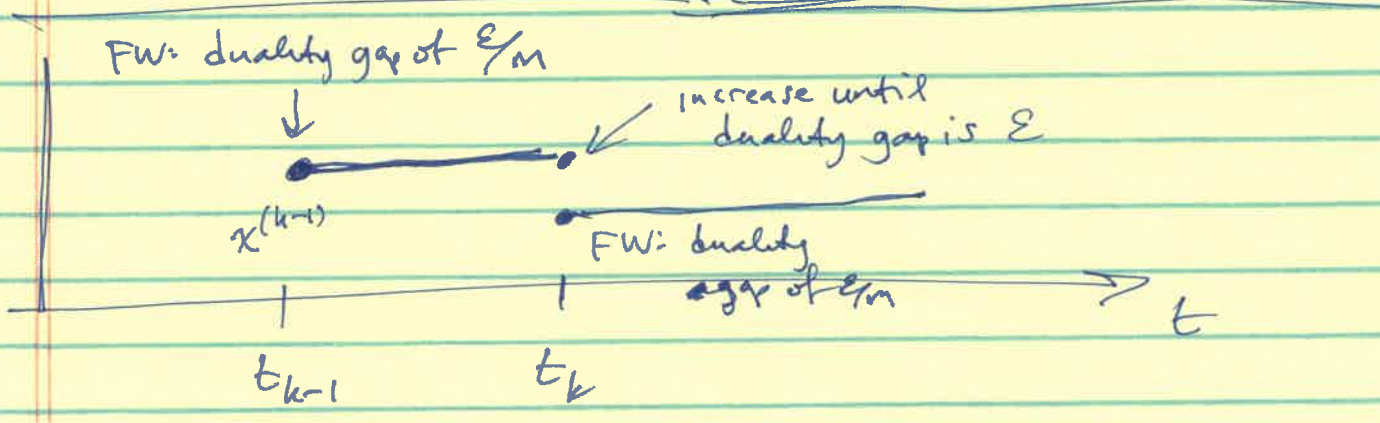 FW: duality gap of ε/m
increase until
duality gap is ε
x^(k-1)
FW: duality
gap of ε/m
t
t_{k-1}
t_k